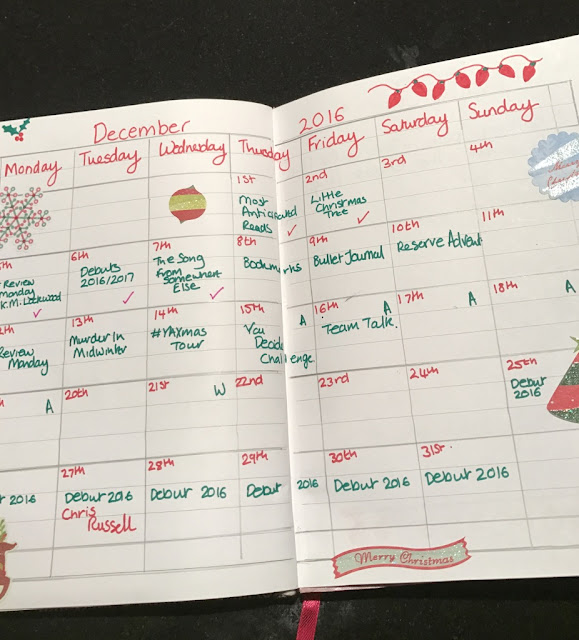 December 2016
Monday Tuesday Wednesday Thursday Friday Saturday Sunday
1st 2nd 3rd 4th
Most
Anticipated
Reads
Little
Christmas
Tree
6th 7th 8th 9th 10th 11th
Review
Monday
K.M. Lockwood
Debuts
2016/2017
The Song
From
Somewhere
Else
Bookmarks
Bullet Journal
Reserve Advent
13th 14th 15th 16th 17th 18th
Review
Monday
Murder In
Midwinter
#YAXmas
Tour
You
Decide
Challenge
A
A
Team Talk.
A
A
A
20th 21st 22nd 23rd 24th 25th
W
Debut
2016
27th 28th 29th 30th 31st
2016
Debut 2016
Chris
Russell
Debut 2016
Debut 2016
Debut 2016
Debut 2016
Merry Christmas